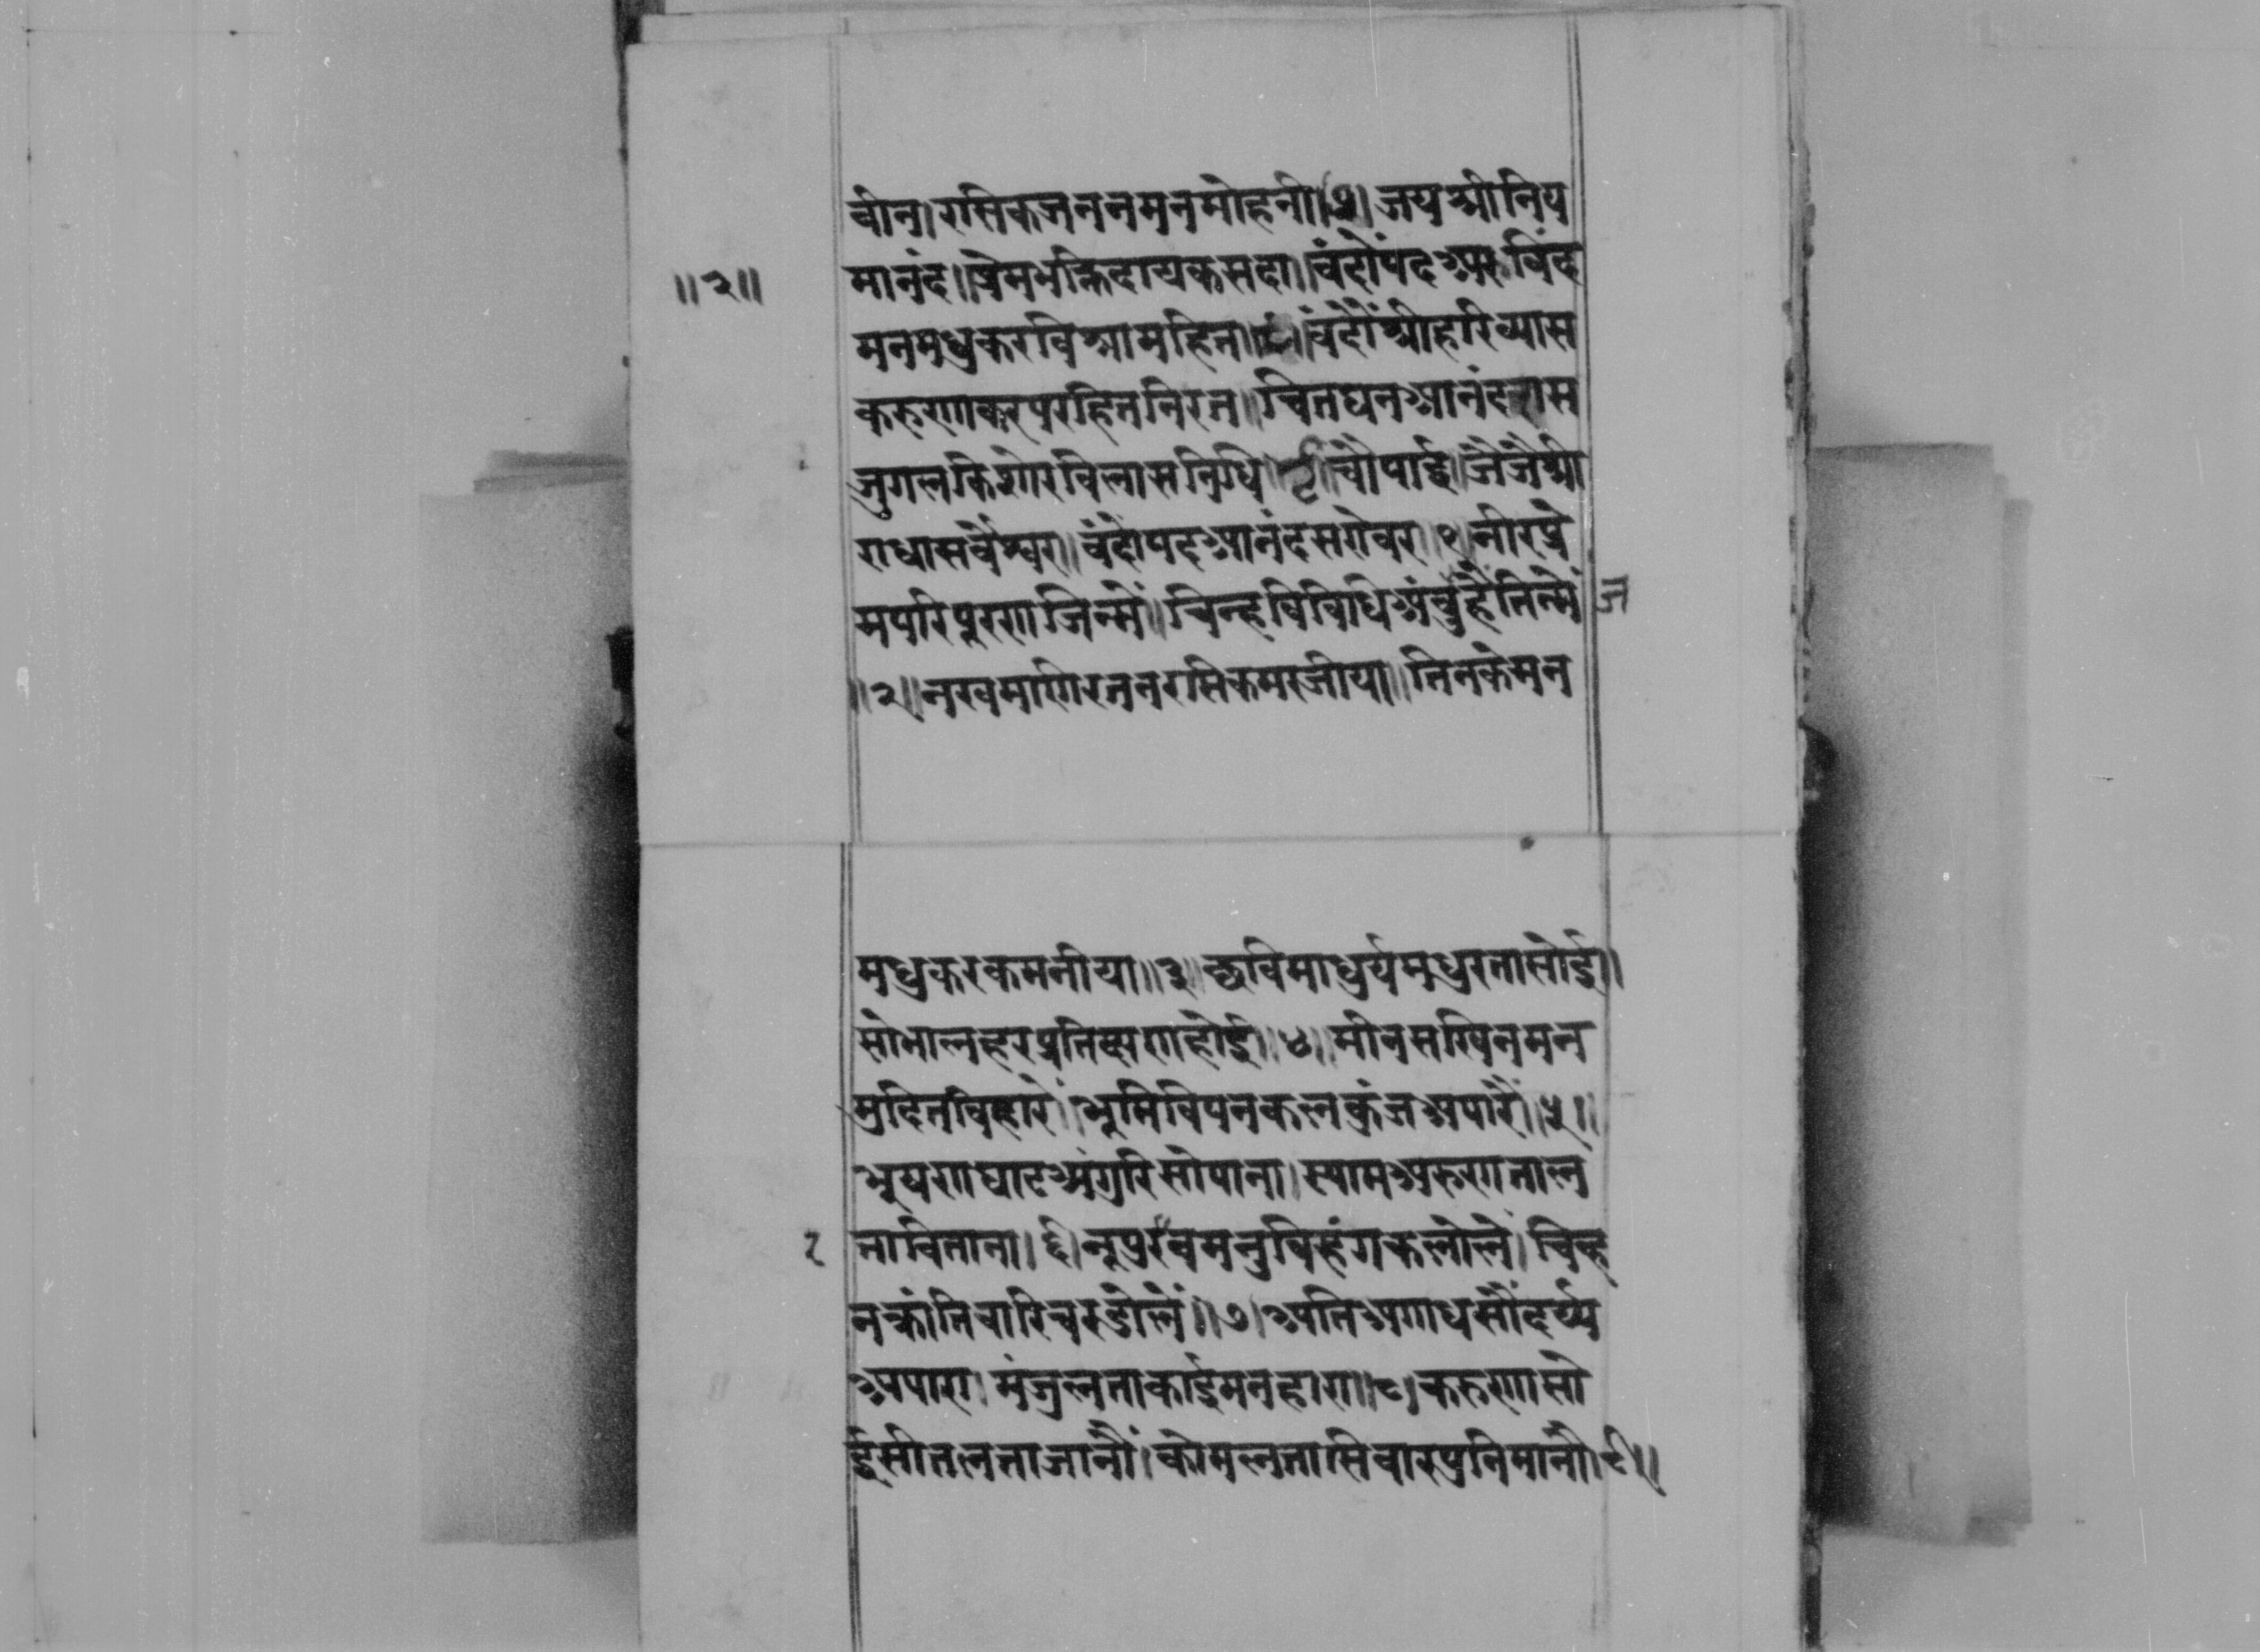 वीन। रसिकजननमनमोहनी।७। जयश्रीनिय
॥२॥
मानंद॥ प्रेमभक्तिदायकसदा॥ वंदोंपदअरुविंद
मनमधुकरविश्रामहित॥८॥ वंदौंश्रीहरिव्यास
करुणाकरपरहितनिरत॥ चितघनआनंदरास
जुगलकिशोरविलासनिधि॥९॥ चौपाई॥ जैजैश्री
राधासर्वेश्वरा॥ वंदोपदआनंदसरोवरा।१। नीरप्रे
मपरिपूरणजिन्में॥ चिन्हविविधिअंबुहैंतिन्में ज
॥२॥ नखमणिरतनरसिकमरजीया॥ तिनकेमन
मधुकरकमनीया॥३॥ छविमाधुर्यमधुरतासोई॥
सोभालहरप्रतिक्षणहोई॥४॥ मीनसखिनमन
मुदितविहारें॥ भूमिविपनकलकुंजअपारें॥५॥
भूषणघाटअंगुरिसोपाना। स्यामअरुणताल
२ नाविताना।६। नूपुररवमनुविहंगकलोलें। चिन्ह
नक्रांतिवारिचरुडोलें॥७॥ अतिअगाधसौंदर्य्य
अपारा। मंजुलताकाईमनहारा॥८। करुणासो
ईसीतलताजानौं। कोमलतासिवारप्रतिमानौ।९॥